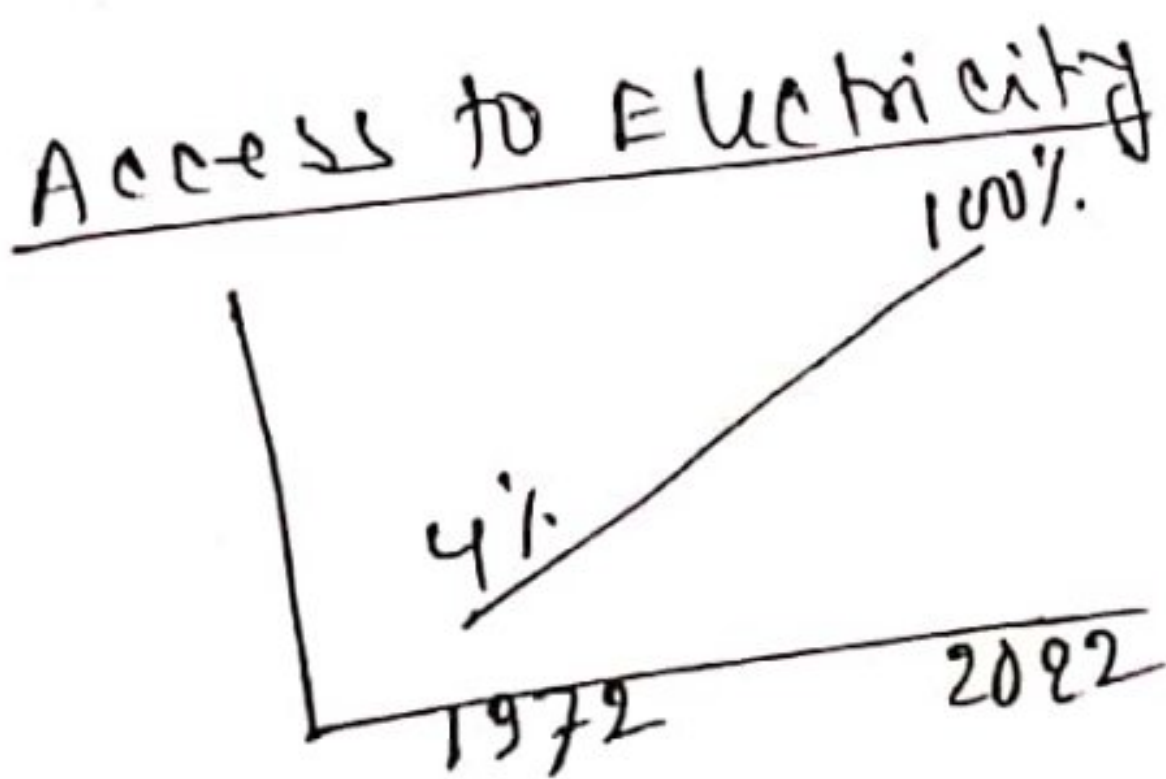 Access to Electricity
100%
4%
1972
2022